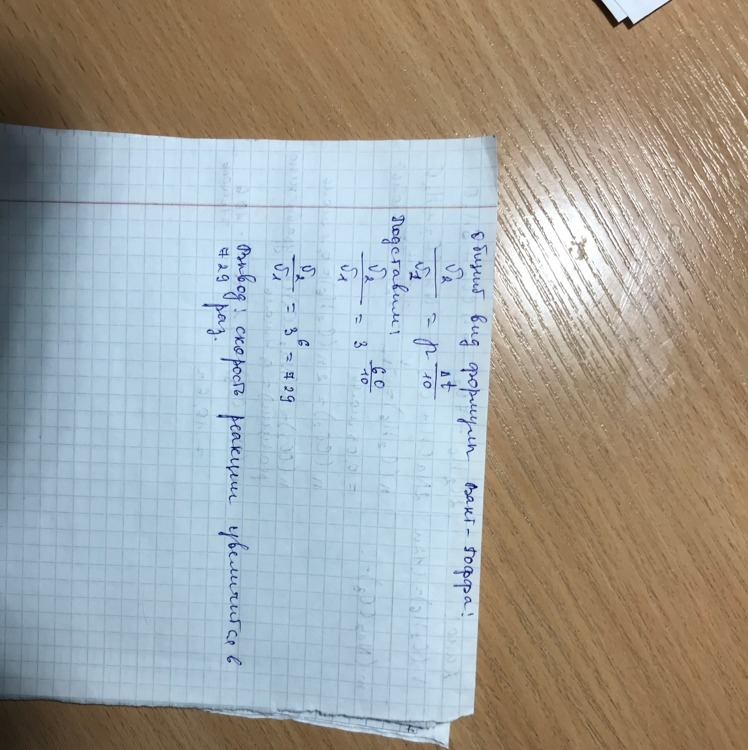 Общий вид формулы Вант-Гоффа:
v₂/v₁ = γ^(Δt/10)
Подставим:
v₂/v₁ = 3^(60/10)
v₂/v₁ = 3⁶ = 729
Вывод: скорость реакции увеличится в
729 раз.